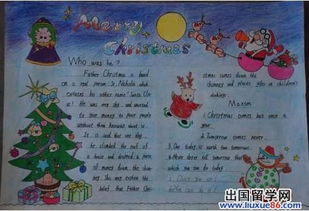 Merry
Christmas
Who was he?
Father Christmas is based
on a real person, St. Nicholas, which
explains his other name "Santa Cla
us". He was very shy, and wanted
to give money to poor people
without them knowing about it.
It is said that one day,
he climbed the roof of
a house and dropped a purse
of money down the chimn
ey. This may explain the
belief that Father Chri
stmas comes down the
chimney and places gifts in children's
Maxim
Christmas comes but once a
year.
Tomorrow comes never.
One today is worth two tomorrows.
Never leave till tomorrow that
which you can do today.
出国留学网
www.liuxue86.com